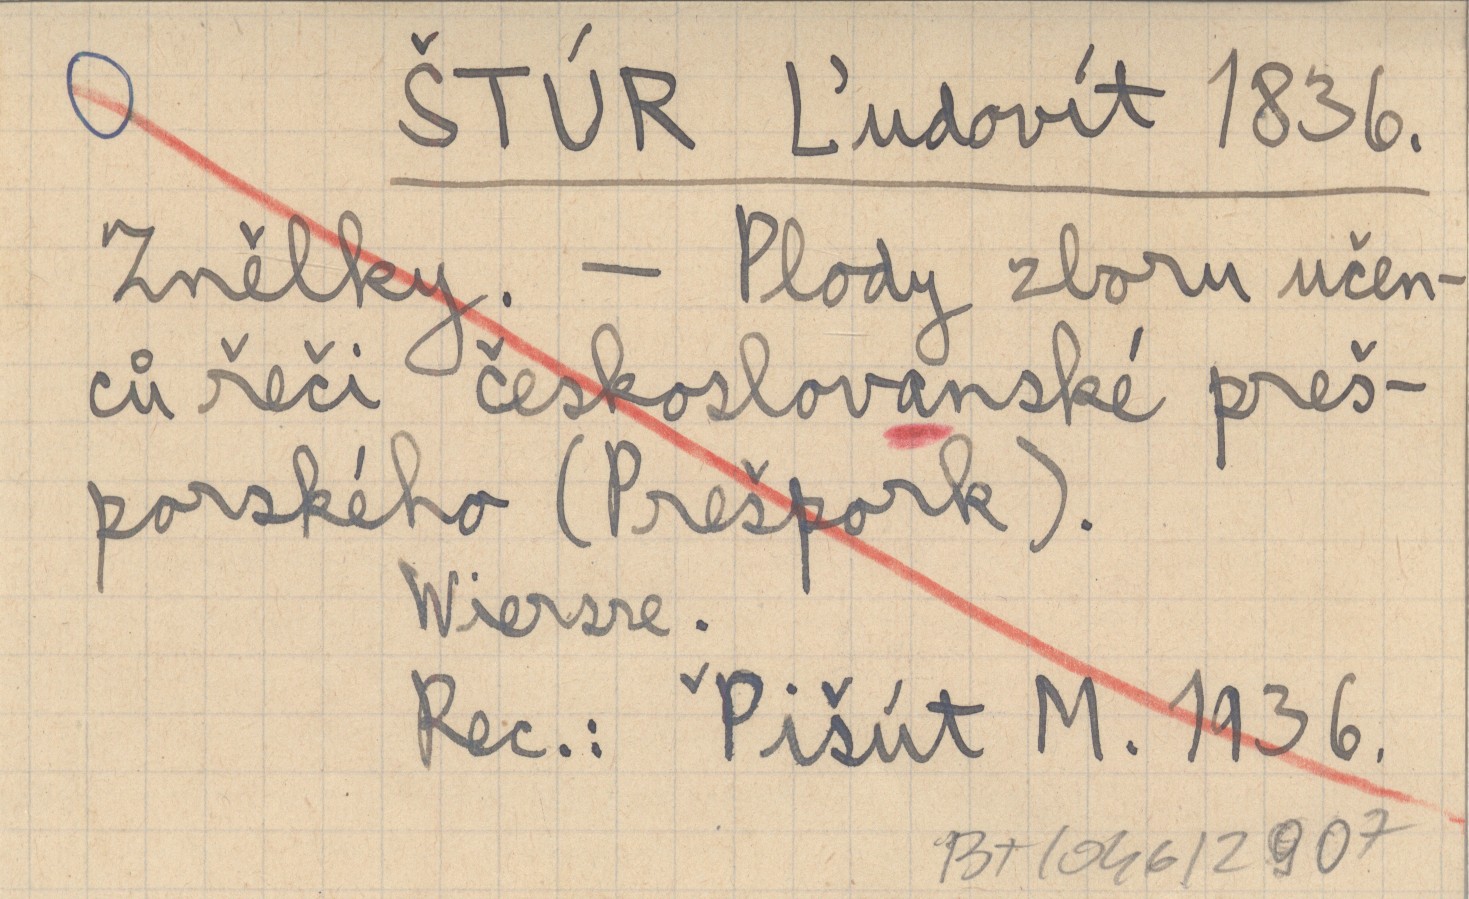 ŠTÚR Ľudovít 1836.
Znělky. — Plody zboru učen-
ců řeči českoslovanské preš-
porského (Prešpork).
Wiersze.
Rec.: ˇPišút M. 1936.
BT/046/2907